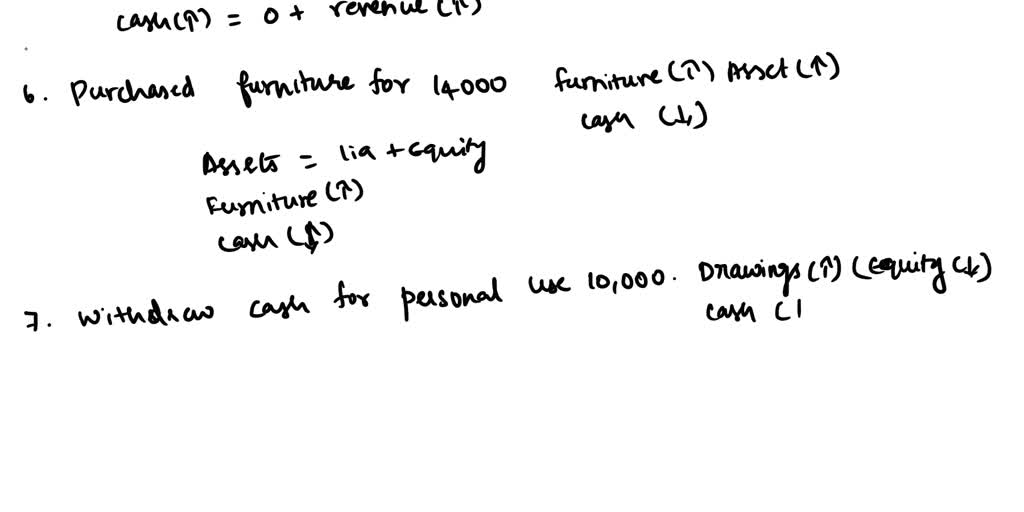 cash(↑) = 0 + revenue(↑)
6. Purchased furniture for 14000 furniture(↑) Asset(↑)
cash (↓)
Assets = lia + Equity
Furniture(↑)
cash (↓)
7. withdraw cash for personal use 10,000. Drawings(↑) (equity(↓)
cash (